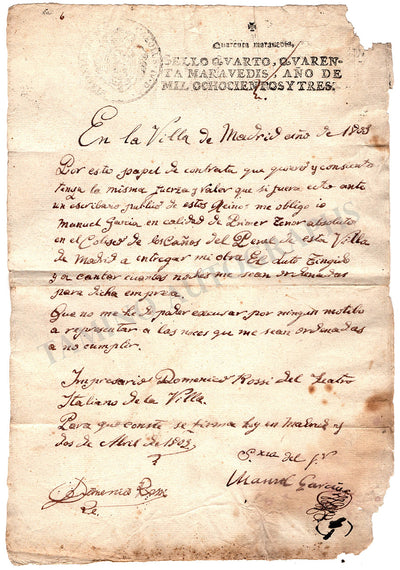 6
Quarenta maravedis.
SELLO QVARTO, QVAREN-
TA MARAVEDIS, AÑO DE
MIL OCHOCIENTOS Y TRES.
En la Villa de Madrid año de 1803
Por este papel de contrata que quiero y consiento
tenga la misma fuerza y valor que si fuera echo ante
un escribano publico de estos Reinos me obligo io
Manuel Garcia en calidad de Primer Tenor absoluto
en el Coliseo de los Caños del Peral de esta Villa
de Madrid a entregar mi obra El Luto Fingido
y a cantar cuantas noches me sean ordenadas
para dicha empresa.
Que no me he de poder excusar por ningun motibo
a representar a las noces que me sean ordenadas
a no cumplir.
Impresario Domenico Rossi del Teatro
Italiano de la Villa.
Para que conste se firma hoy en Madrid a
dos de Abril de 1803
del
Domenico Rossi
Manuel Garcia